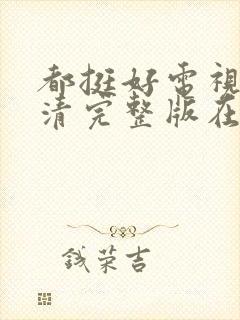 都挺好电視
清完整版在
钱荣吉